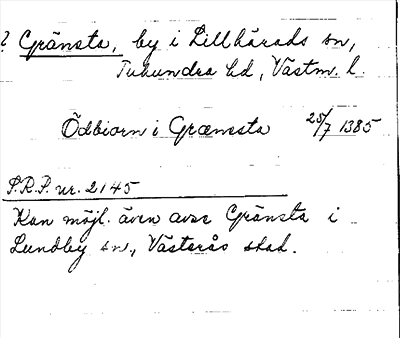 ? Gränsta, by i Lillhärads sn,
Tuhundra hd, Västm. l.
Ödbiorn i Grænesta 25/7 1385
S.R.P. nr. 2145
Kan möjl. även avse Gränsta i
Lundby sn., Västerås stad.